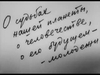 О судьбах
нашей планеты,
о человечестве,
о его будущем -